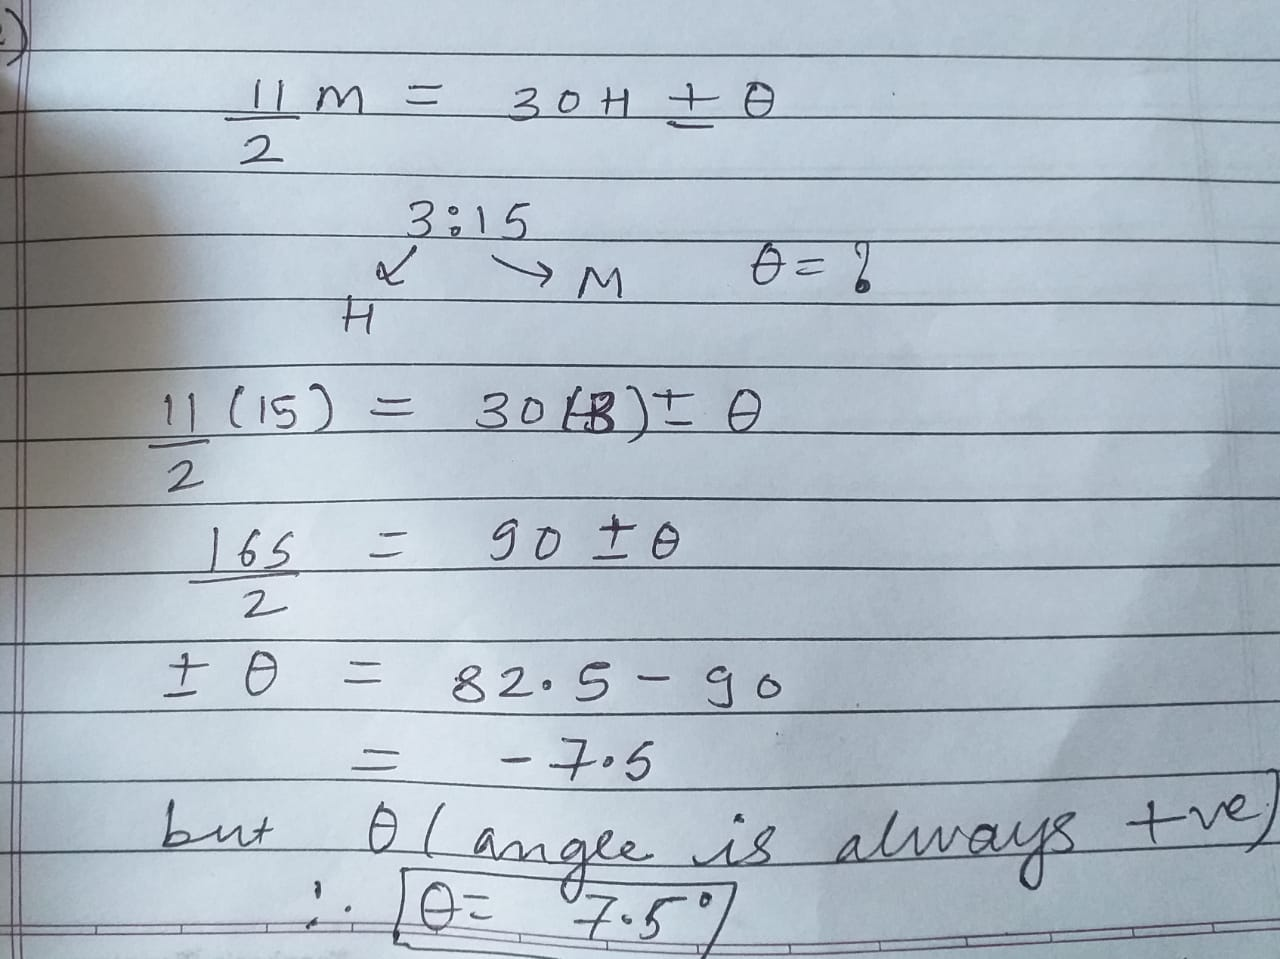 11/2 M = 30H ± θ
3:15
H M θ = ?
11/2 (15) = 30(3) ± θ
165/2 = 90 ± θ
± θ = 82.5 - 90
= -7.5
but θ (angle is always +ve)
∴ θ = 7.5°